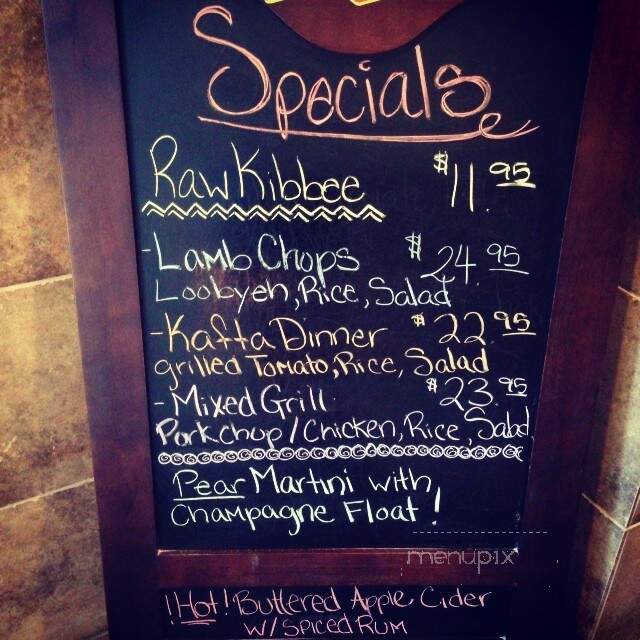 Specials
Raw Kibbee $11.95
-Lamb Chops $24.95
Loobyeh, Rice, Salad
-Kafta Dinner $22.95
grilled Tomato, Rice, Salad
-Mixed Grill $23.95
Pork chop / Chicken, Rice, Salad
Pear Martini with
Champagne Float!
menupix
! Hot! Buttered Apple Cider
w/ Spiced Rum